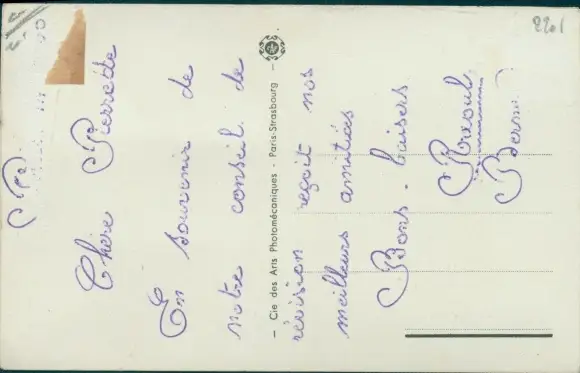 Chère Pierrette
En souvenir de
notre conseil de
révision reçoit nos
meilleurs amitiés
Bons - baisers
Raoul
— Cie des Arts Photomécaniques - Paris-Strasbourg —
2201